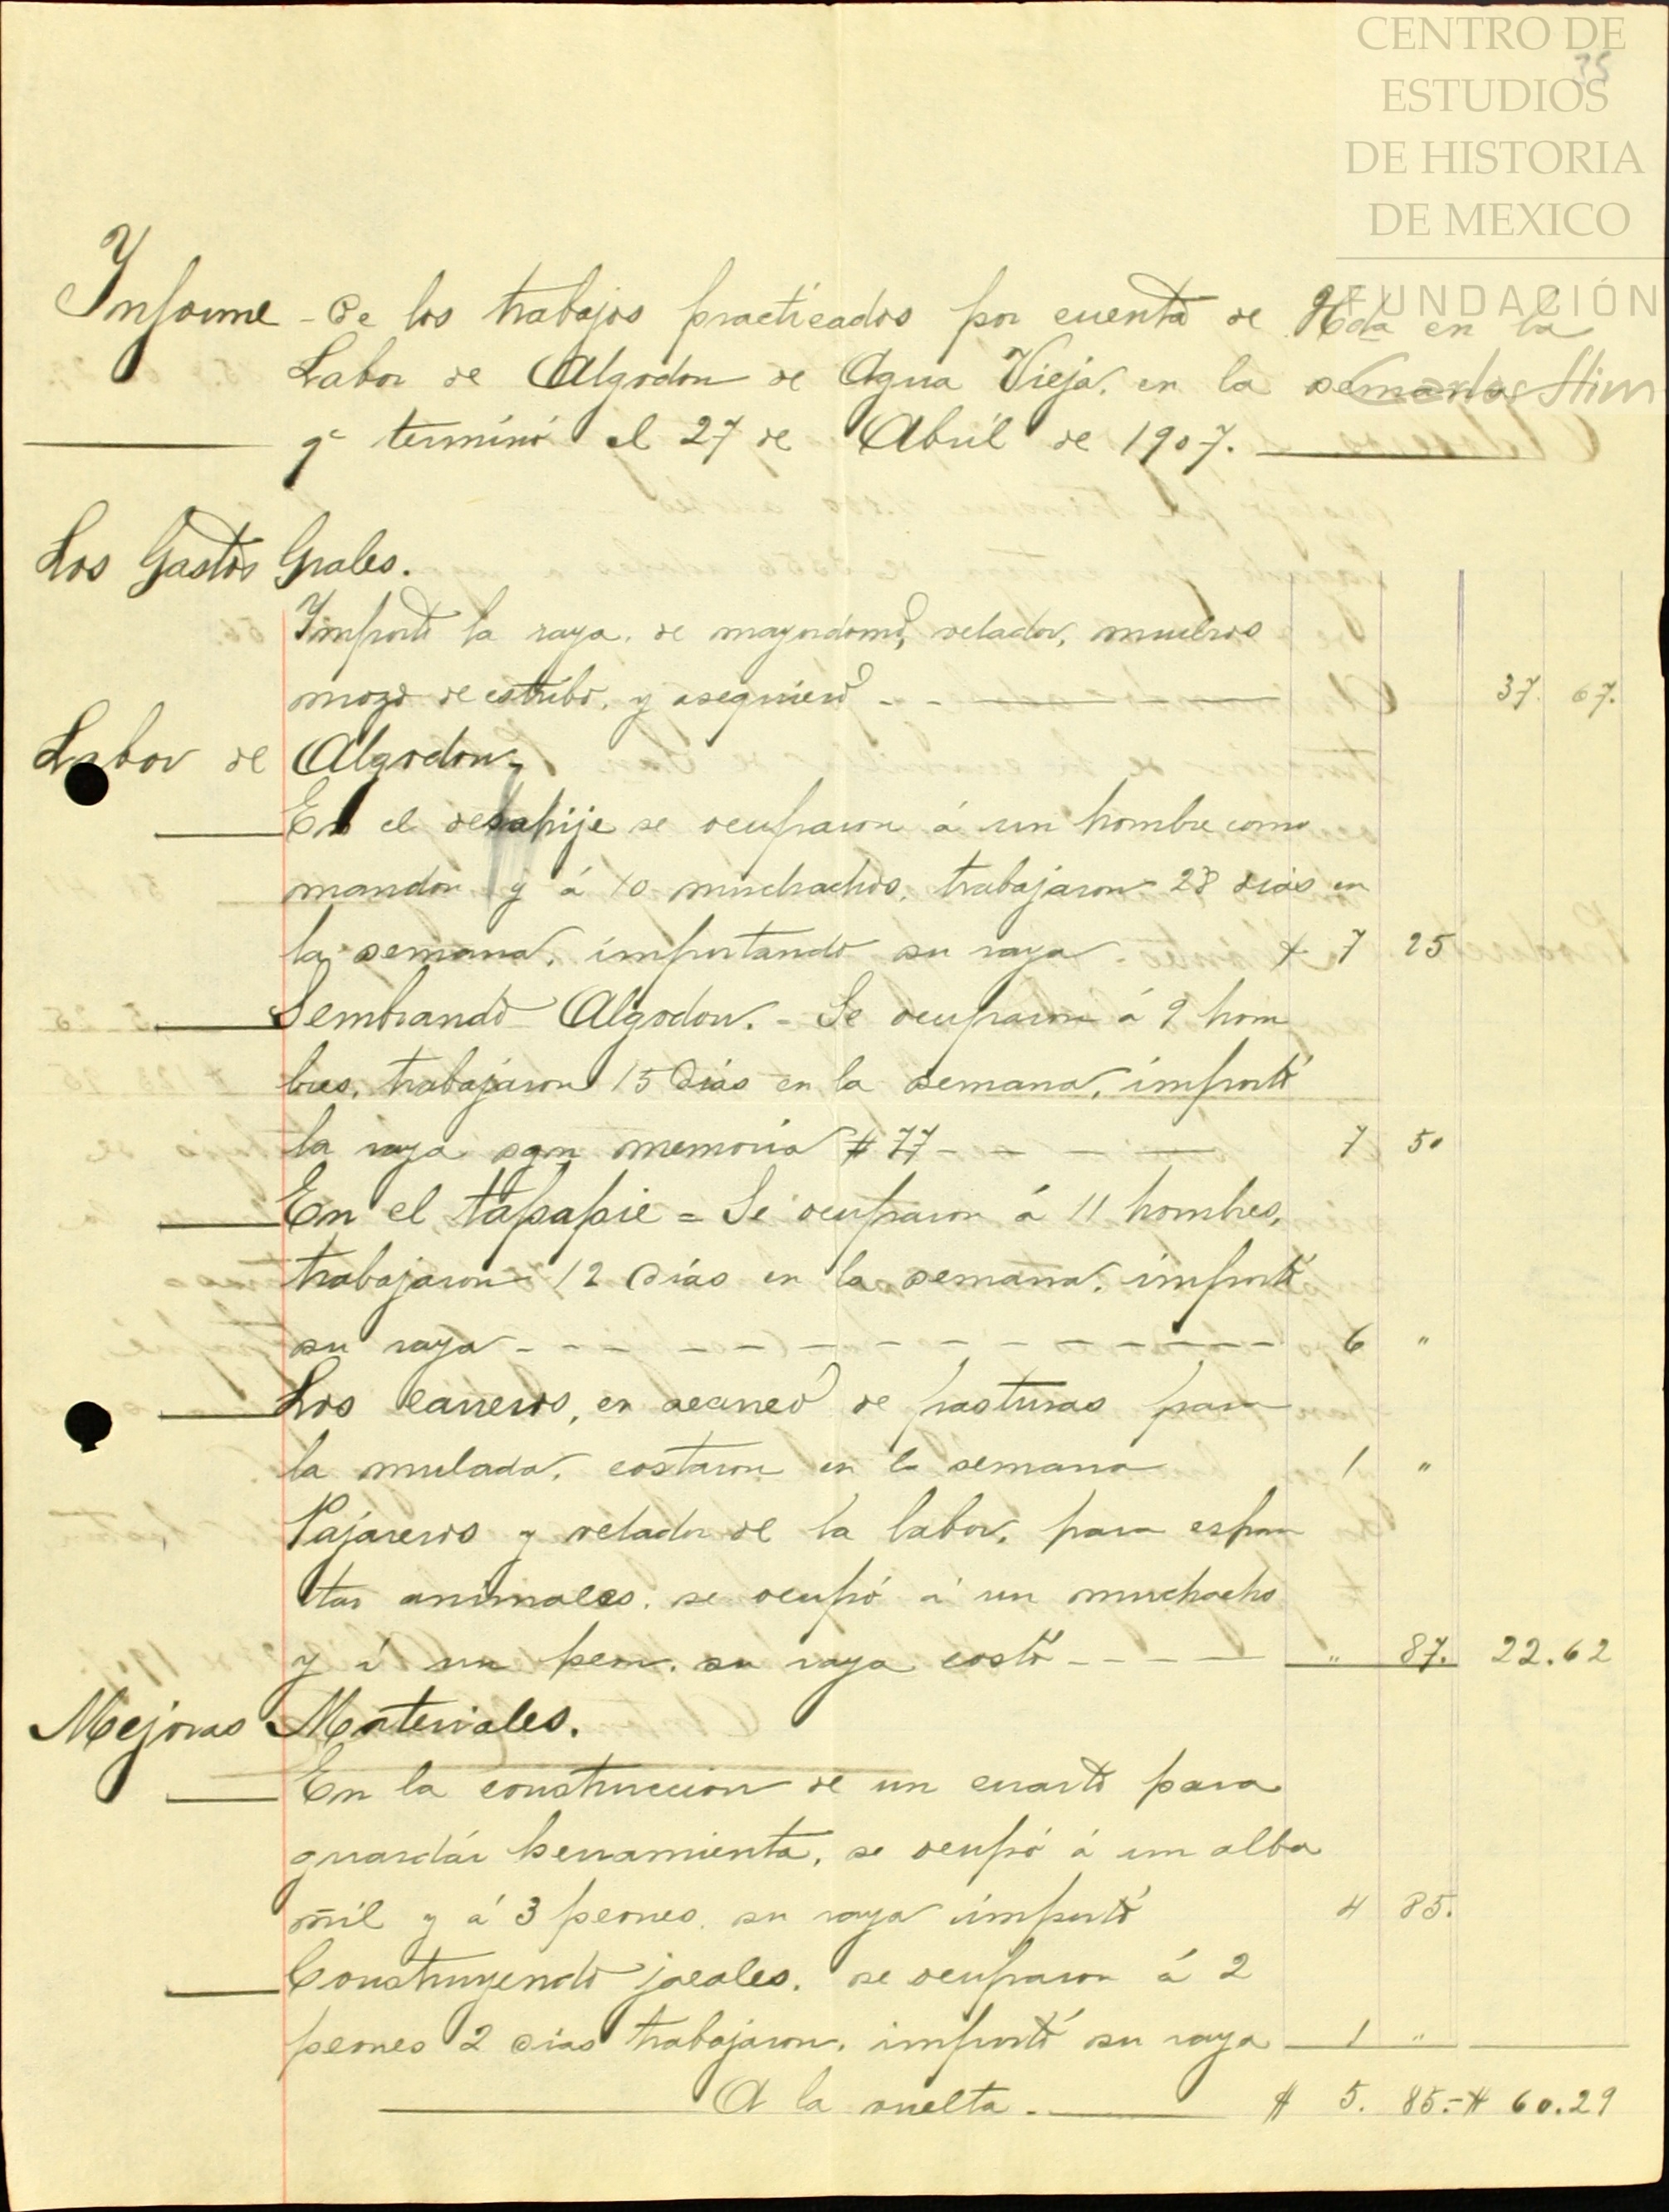 CENTRO DE
ESTUDIOS
DE HISTORIA
DE MEXICO
FUNDACIÓN
Carlos Slim
35
Informe - De los trabajos practicados por cuenta de Hda en la
Labor de Algodon de Agua Vieja. en la semana
qe terminó el 27 de Abril de 1907.
Los Gastos Grales.
Importó la raya. de mayordomo, velador,
mozo de estribo. y aseguiero - - 37. 67.
Labor de Algodon.
En el desahije se ocuparon á un hombre como
mandon y á 10 muchachos, trabajaron 28 dias en
la semana, importando su raya. $ 7 25
Sembrando Algodon. - Se ocuparon á 9 hom
bres, trabajaron 15 Dias en la semana, importó
la raya sgn memoria # 77 - - - - 7 50
En el tapapie = Se ocuparon á 11 hombres,
trabajaron 12 Dias en la semana. importó
su raya - - - - - - - - - - - 6 "
Los carreros, en acarreo de pasturas para
la mulada, costaron en la semana 1 "
Pajareros y velador de la labor, para espan
tar animales. se ocupó á un muchacho
y á un peon. su raya costó - - - - " 87. 22.62
Mejoras Materiales.
En la construccion de un cuarto para
guardár herramienta, se ocupó á un alba
ñil y á 3 peones. su raya importó 4 85.
Construyendo jacales. se ocuparon á 2
peones 2 dias trabajaron. importó su raya 1 "
A la vuelta. $ 5. 85.- $ 60.29